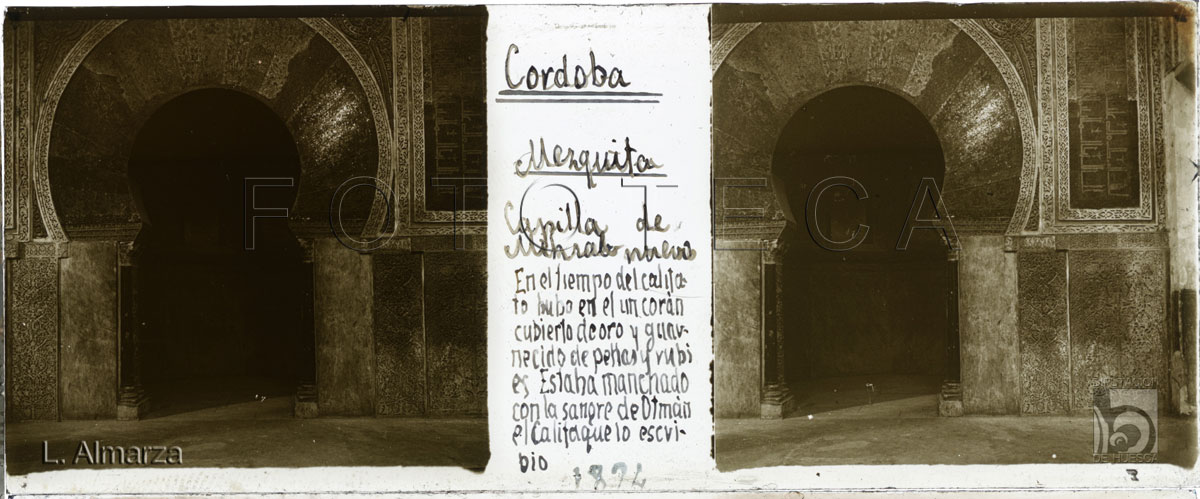 Cordoba
Mezquita
Capilla de
Mihrab nuevo
En el tiempo del califa-
to hubo en el un corán
cubierto de oro y guar-
necido de perlas y rubi
es Estaba manchado
con la sangre de Otmán
el Califa que lo escri-
bio
1894
FOTOTECA
L. Almarza
DIPUTACIÓN
DE HUESCA